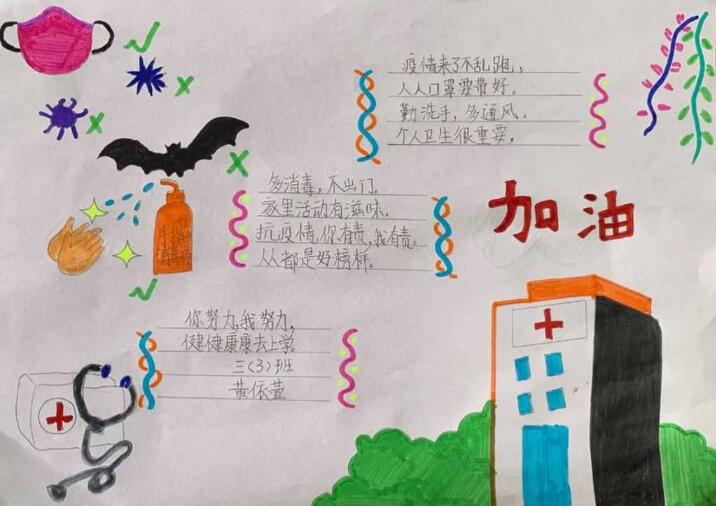 疫情来了不乱跑，
人人口罩要带好。
勤洗手，多通风。
个人卫生很重要。
多消毒，不出门。
家里活动有滋味。
抗疫情，你有责，我有责。
人人都是好榜样。
加油
你努力，我努力，
健健康康去上学。
三（3）班